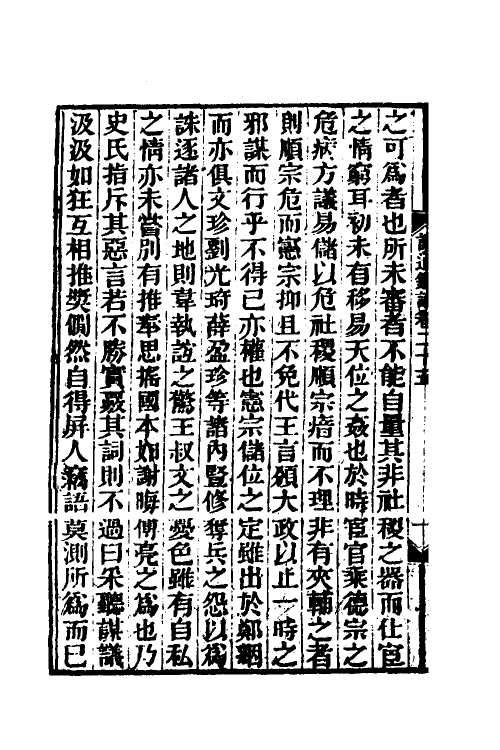 之可爲者也所未審者不能自量其非社稷之器而仕宦
之情窮耳初未有移易天位之姦也於時宦官乘德宗之
危病方議易儲以危社稷順宗瘖而不理非有夾輔之者
則順宗危而憲宗抑且不免代王言頒大政以止一時之
邪謀而行乎不得已亦權也憲宗儲位之定雖出於鄭絪
而亦俱文珍劉光琦薛盈珍等諸內豎修奪兵之怨以爲
誅逐諸人之地則韋執誼之驚王叔文之憂色雖有自私
之情亦未嘗別有推奉思搖國本如謝晦傅亮之爲也乃
史氏指斥其惡言若不勝實覈其詞則不過曰采聽謀議
汲汲如狂互相推奬僩然自得屏人竊語莫測所爲而已
讀通鑑論卷二十五